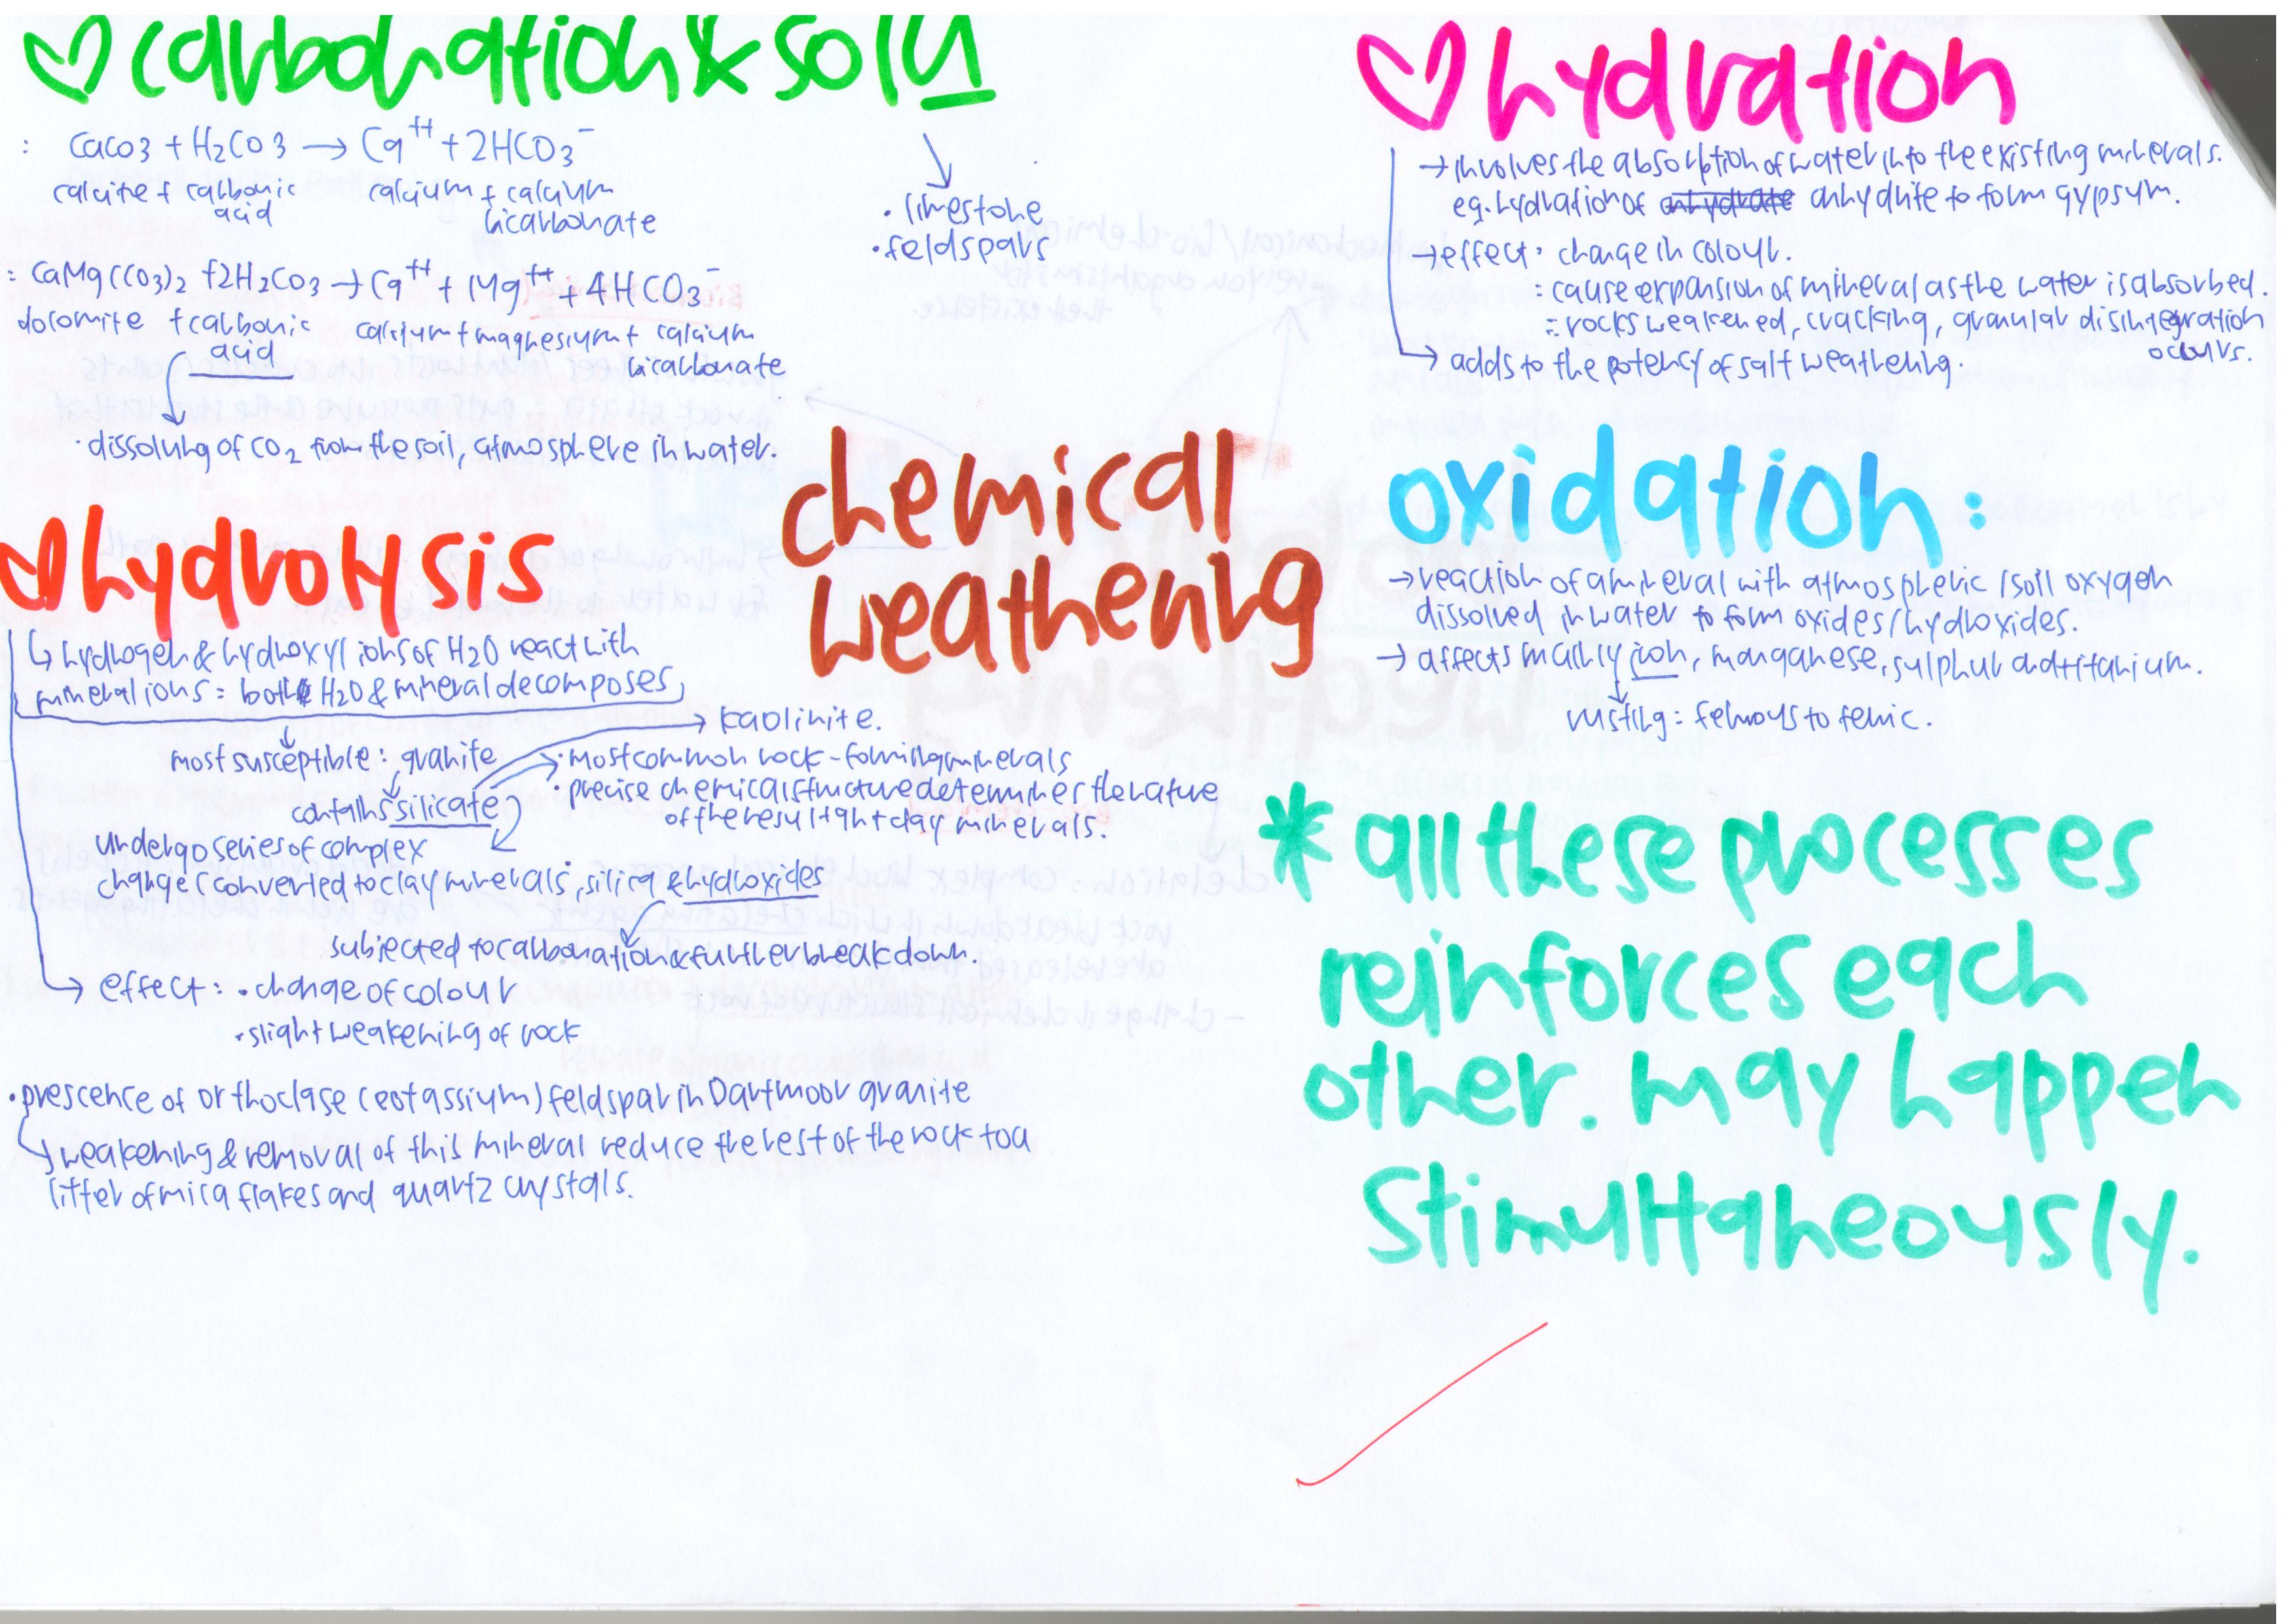 ♡ carbonation & solu
: CaCO3 + H₂CO3 → Ca⁺⁺ + 2HCO₃⁻
calcite + carbonic acid
calcium + calcium bicarbonate
: CaMg(CO3)₂ + 2H₂CO3 → Ca⁺⁺ + Mg⁺⁺ + 4HCO₃⁻
dolomite + carbonic acid
calcium + magnesium + calcium bicarbonate
· dissolving of CO₂ from the soil, atmosphere in water.
· limestone
· feldspars
♡ hydrolysis
↳ hydrogen & hydroxyl ions of H₂O react with
mineral ions = both H₂O & mineral decomposes
most susceptible: granite
contains silicate
→ kaolinite.
· most common rock-forming minerals
· precise chemical structure determines the nature
of the resultant clay minerals.
undergo series of complex
changes converted to clay minerals, silica & hydroxides
subjected to carbonation & further breakdown.
→ effect: · change of colour
· slight weakening of rock
· prescence of orthoclase (potassium) feldspar in Dartmoor granite
↳ weakening & removal of this mineral reduce the rest of the rock to a
litter of mica flakes and quartz crystals.
chemical
weathering
♡ hydration
→ involves the absorption of water into the existing minerals.
eg. hydration of anhydrite to form gypsum.
→ effect: change in colour.
: cause expansion of mineral as the water is absorbed.
= rocks weakened, cracking, granular disintegration
occurs.
→ adds to the potency of salt weathering.
oxidation:
→ reaction of a mineral with atmospheric / soil oxygen
dissolved in water to form oxides/hydroxides.
→ affects mainly iron, manganese, sulphur and titanium.
rusting = ferrous to ferric.
* all these processes
reinforces each
other. may happen
Stimultaneously.